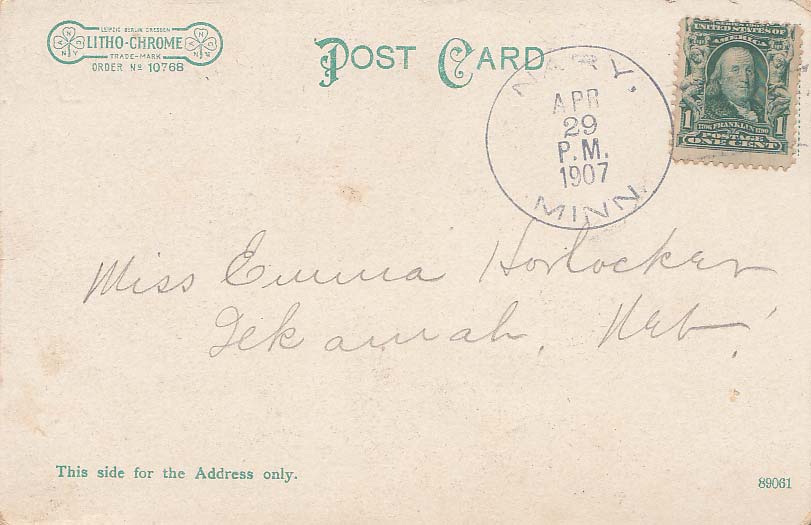 LEIPZIG BERLIN DRESDEN
LITHO-CHROME
TRADE-MARK
ORDER Nº 10768
POST CARD
NARY,
APR
29
P.M.
1907
MINN.
UNITED STATES OF
AMERICA
1706 FRANKLIN 1790
1 POSTAGE 1
ONE CENT
Miss Emma Horlocker
Tekamah, Neb.
This side for the Address only.
89061